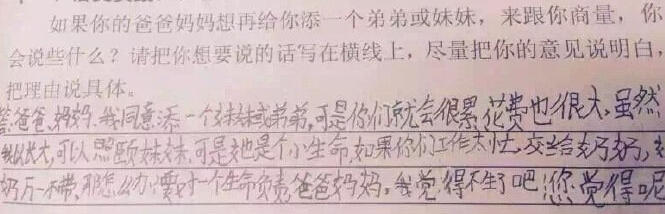 如果你的爸爸妈妈想再给你添一个弟弟或妹妹，来跟你商量，你
会说些什么？请把你想要说的话写在横线上，尽量把你的意见说明白，
把理由说具体。
答:爸爸,妈妈,我同意添一个妹妹或弟弟,可是你们就会很累,花费也很大,虽然
我长大,可以照顾妹妹,可是她是个小生命,如果你们工作太忙,交给奶奶,
奶万一不带,那怎么办,要对一个生命负责,爸爸妈妈,我觉得不生了吧,您觉得呢